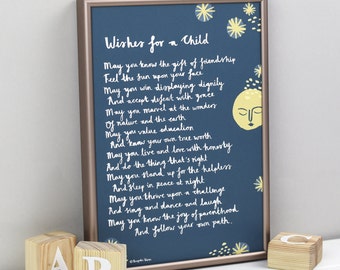 Wishes for a Child
May you know the gift of friendship
Feel the sun upon your face
May you win displaying dignity
And accept defeat with grace
May you marvel at the wonders
Of nature and the earth
May you value education
And know your own true worth
May you live and love with honesty
And do the thing that's right
May you stand up for the helpless
And sleep in peace at night
May you thrive upon a challenge
And sing and dance and laugh
May you know the joy of parenthood
And follow your own path.
A B C